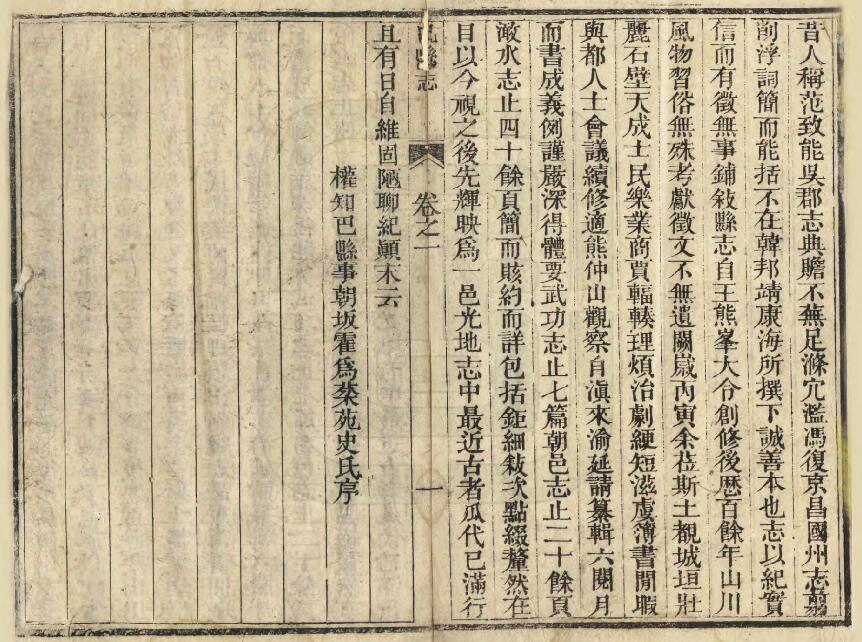 昔人稱范致能吳郡志典贍不蕪足滌宂濫馮復京昌國州志翦
削浮詞簡而能括不在韓邦靖康海所撰下誠善本也志以紀實
信而有徵無事鋪敍縣志自王熊峯大令創修後歷百餘年山川
風物習俗無殊考獻徵文不無遺闕歲丙寅余莅斯土覩城垣壯
麗石壁天成士民樂業商賈輻輳理煩治劇綆短滋虞簿書閒暇
與都人士會議續修適熊仲山觀察自滇來渝延請纂輯六閱月
而書成義例謹嚴深得體要武功志止七篇朝邑志止二十餘頁
澉水志止四十餘頁簡而賅約而詳包括鉅細敍次點綴釐然在
目以今視之後先輝映爲一邑光地志中最近古者瓜代已滿行
縣志
卷之一
一
且有日自維固陋聊紀顚末云
權知巴縣事朝坂霍爲棻苑史氏序